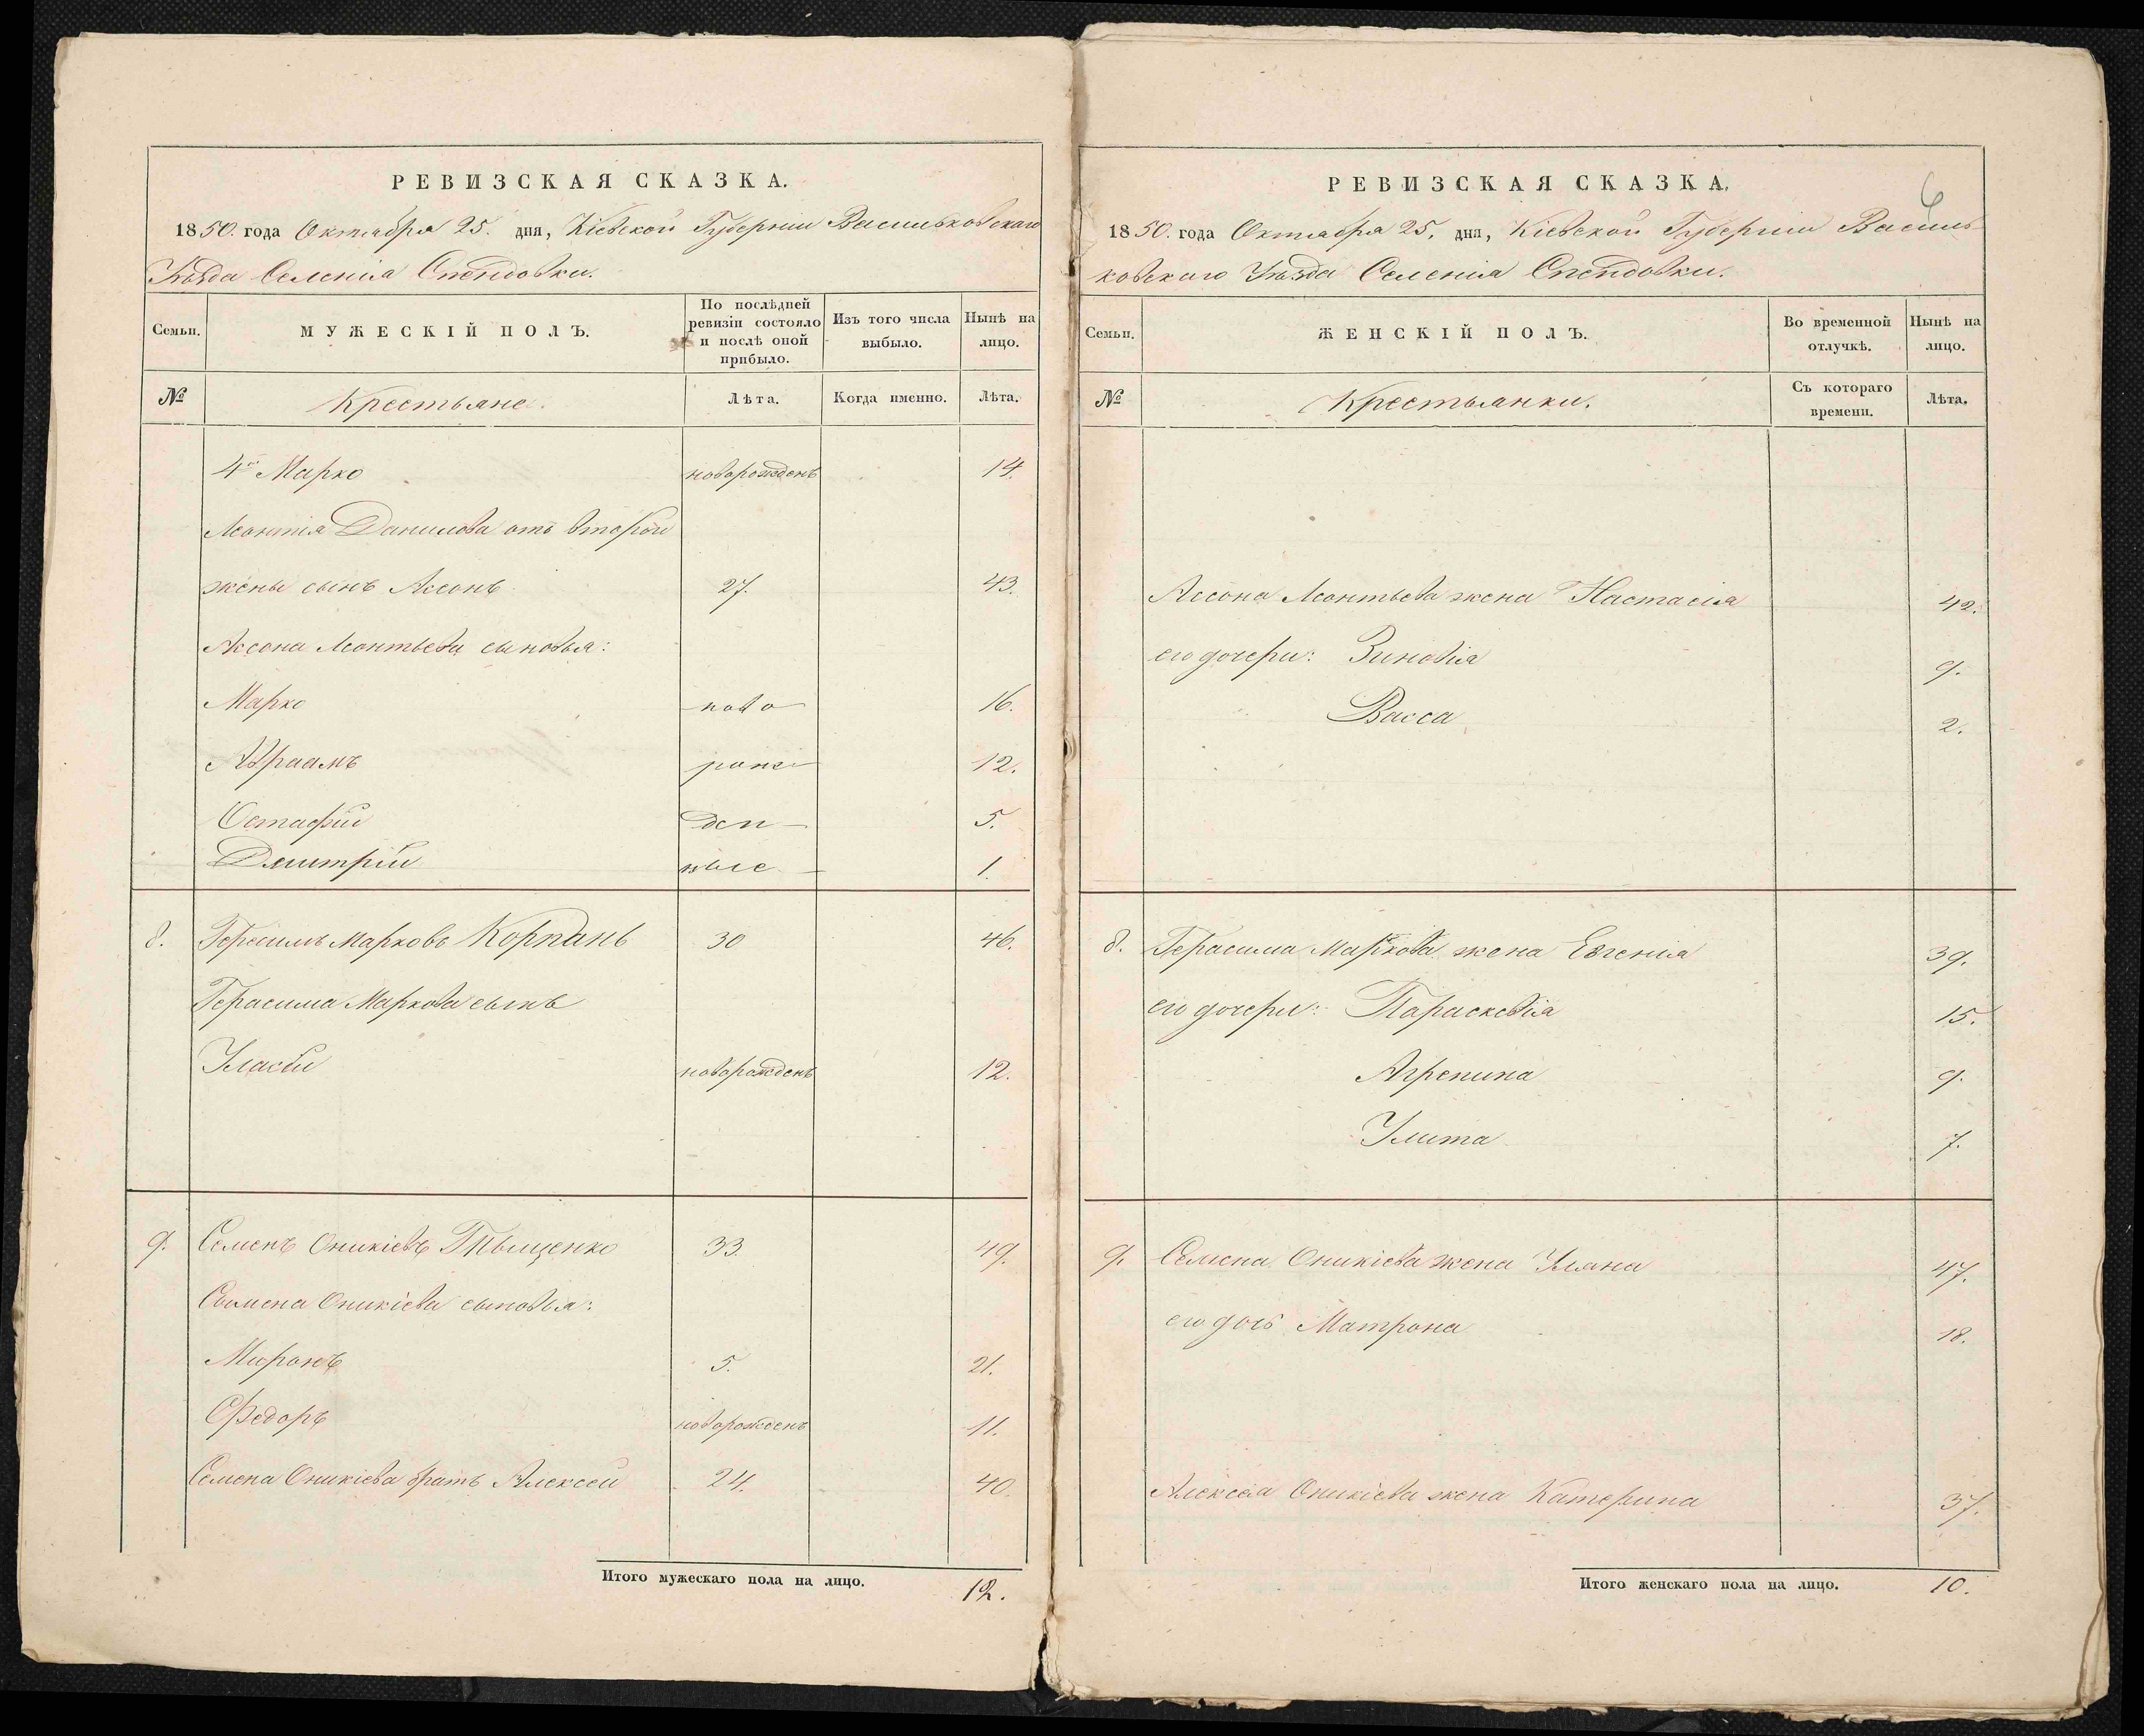 РЕВИЗСКАЯ СКАЗКА.
1850. года Октября 25. дня, Кіевской Губерніи Васильковскаго
Уѣзда Селенія Спендовки.
Семьи.
МУЖЕСКІЙ ПОЛЪ.
По послѣдней ревизіи состояло и послѣ оной прибыло.
Изъ того числа выбыло.
Нынѣ на лицо.
№
Крестьяне.
Лѣта.
Когда именно.
Лѣта.
4й Марко новорожденъ 14.
Леонтія Данилова отъ второй
жены сынъ Аксонъ 27. 43.
Аксона Леонтьева сыновья:
Марко ново 16.
Авраамъ рож 12.
Остафій ден 5.
Дмитрій ные 1.
8. Герасимъ Марковъ Корпань 30 46.
Герасима Маркова сынъ
Уласій новорожденъ 12.
9. Семенъ Оникіевъ Тыщенко 33. 49.
Семена Оникіева сыновья:
Миронъ 5. 21.
Федоръ новорожденъ 11.
Семена Оникіева братъ Алексей 24. 40.
Итого мужескаго пола на лицо. 12.
6
РЕВИЗСКАЯ СКАЗКА.
1850. года Октября 25. дня, Кіевской Губерніи Василь-
ковскаго Уѣзда Селенія Спендовки.
Семьи.
ЖЕНСКІЙ ПОЛЪ.
Во временной отлучкѣ.
Нынѣ на лицо.
№
Крестьянки.
Съ котораго времени.
Лѣта.
Аксона Леонтьева жена Настасія 42.
его дочери: Зиновія 9.
Васса 2.
8. Герасима Маркова жена Евгенія 39.
его дочери: Параскевія 15.
Агрепина 9.
Улита 7.
9. Семена Оникіева жена Уляна 47.
его дочь Матрона 18.
Алексея Оникіева жена Катерина 37.
Итого женскаго пола на лицо. 10.